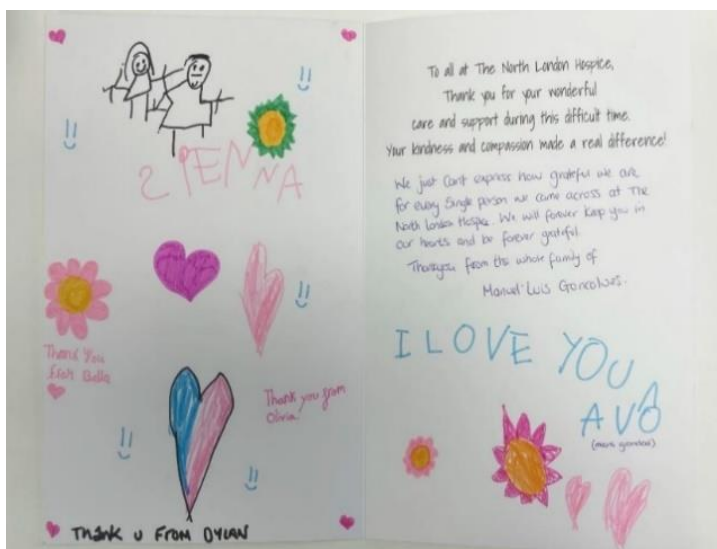 SIENNA
Thank You
from Bella
Thank you from
Olivia
THANK U FROM DYLAN
To all at The North London Hospice,
Thank you for your wonderful
care and support during this difficult time.
Your kindness and compassion made a real difference!
We just can't express how grateful we are
for every single person we came across at The
North London Hospice. We will forever keep you in
our hearts and be forever grateful
Thankyou from the whole family of
Manuel Luis Goncalves.
I LOVE YOU
AVÔ
(means grandad)